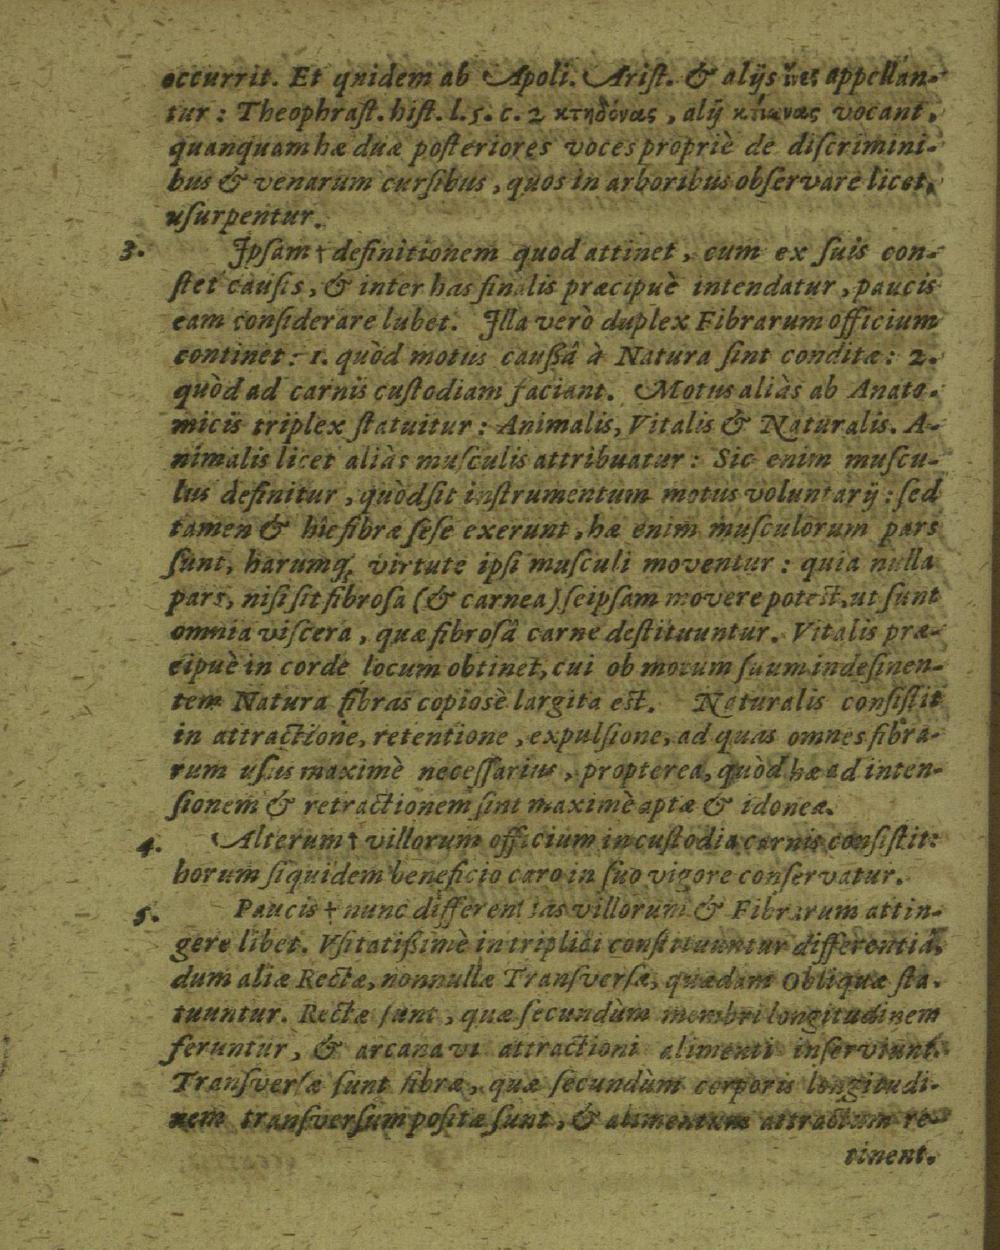 occurrit. Et quidem ab Apoli. Arist. & alijs ἶνες appellan-
tur: Theophrast. hist. l. 5. c. 2 κτηδόνας, alij κτίωνας vocant,
quanquam hæ duæ posteriores voces propriè de discrimini-
bus & venarum cursibus, quos in arboribus observare licet,
usurpentur.
3. Ipsam † definitionem quod attinet, cum ex suis con-
stet causis, & inter has finalis præcipuè intendatur, paucis
eam considerare lubet. Illa verò duplex Fibrarum officium
continet: 1. quòd motus caussâ à Natura sint conditæ: 2.
quòd ad carnis custodiam faciant. Motus aliàs ab Anato-
micis triplex statuitur: Animalis, Vitalis & Naturalis. A-
nimalis licet aliàs musculis attribuatur: Sic enim muscu-
lus definitur, quòd sit instrumentum motus voluntarij: sed
tamen & hîc fibræ sese exerunt, hæ enim musculorum pars
sunt, harumq́; virtute ipsi musculi moventur: quia nulla
pars, nisi sit fibrosa (& carnea) seipsam movere potest, ut sunt
omnia viscera, quæ fibrosâ carne destituuntur. Vitalis præ-
cipuè in corde locum obtinet, cui ob motum suum indesinen-
tem Natura fibras copiosè largita est. Naturalis consistit
in attractione, retentione, expulsione, ad quas omnes fibra-
rum usus maximè necessarius, propterea, quòd hæ ad inten-
sionem & retractionem sint maximè aptæ & idoneæ.
4. Alterum † villorum officium in custodia carnis consistit:
horum siquidem beneficio caro in suo vigore conservatur.
5. Paucis † nunc differentias villorum & Fibrarum attin-
gere libet. Vsitatißimè in triplici constituuntur differentiâ,
dum aliæ Rectæ, nonnullæ Transversæ, quædam Obliquæ sta-
tuuntur. Rectæ sunt, quæ secundùm membri longitudinem
feruntur, & arcana vi attractioni alimenti inserviunt.
Transversæ sunt fibræ, quæ secundùm corporis longitudi-
nem transversum positæ sunt, & alimentum attractum re-
tinent.